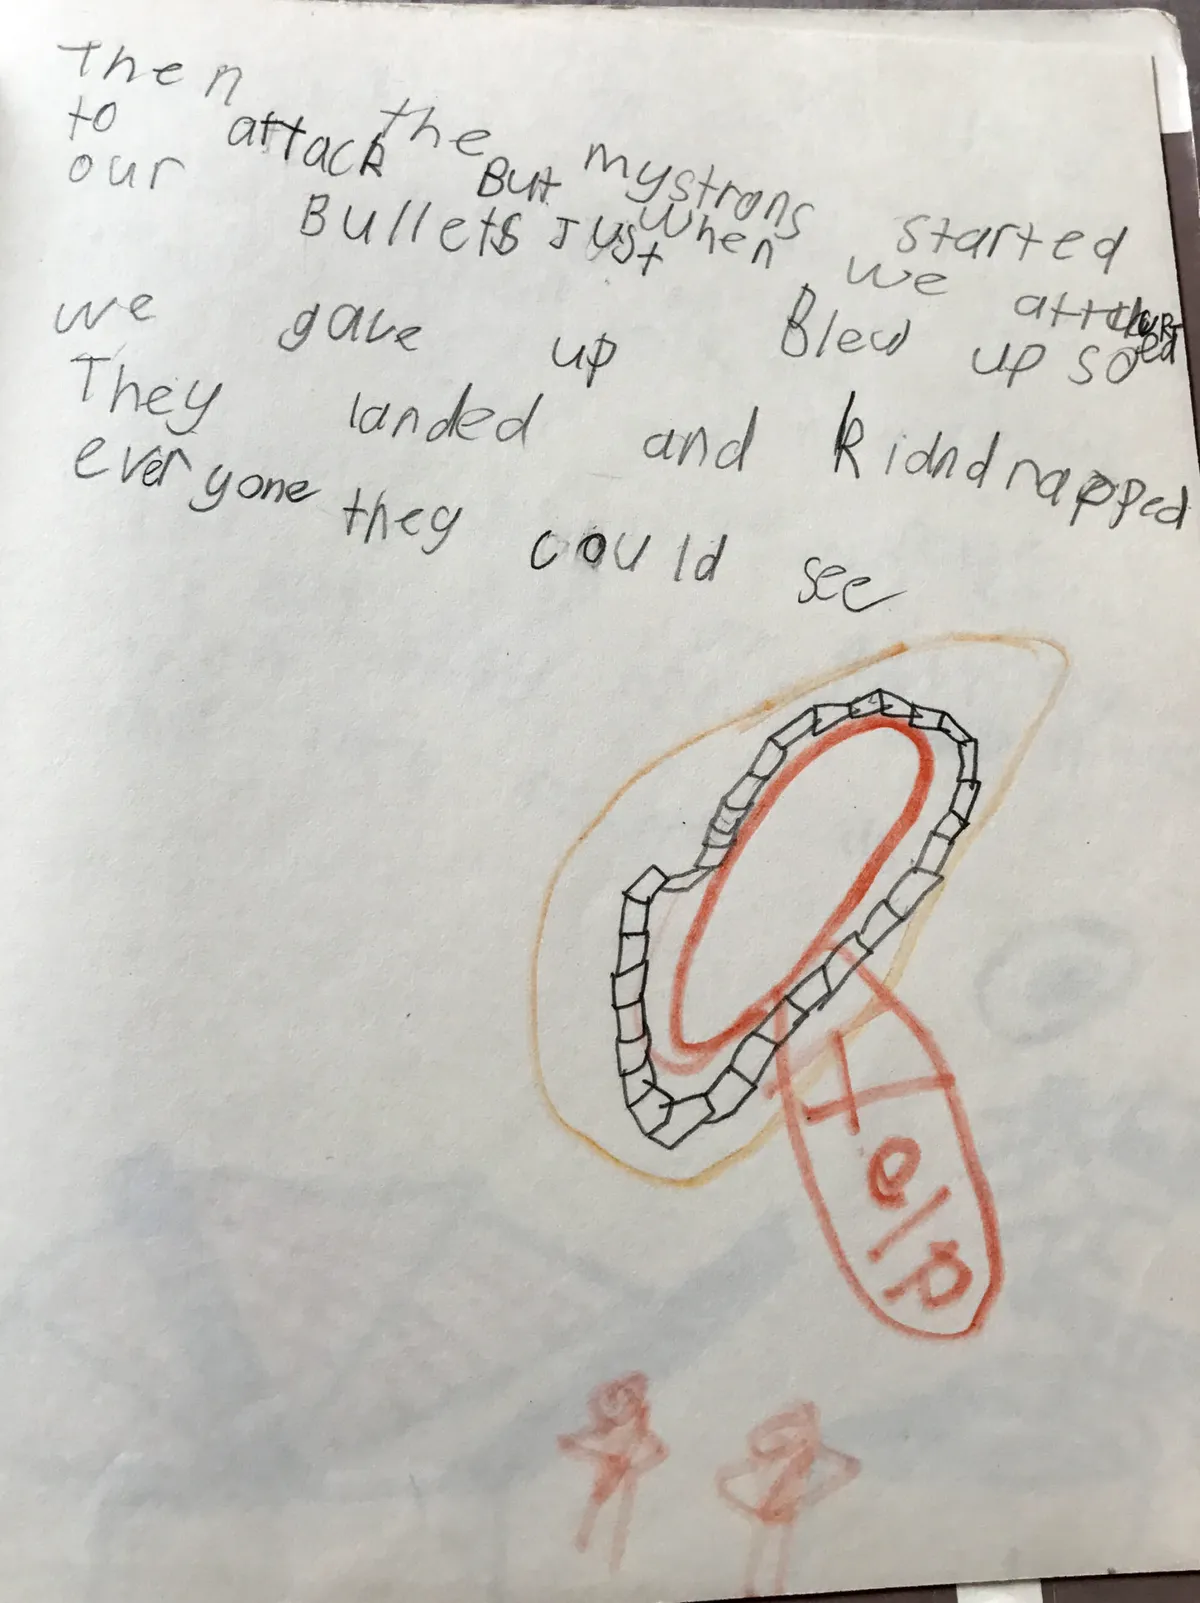 Then the mystrons started
to attack But when we attacked
our Bullets Just Blew up so
we gave up
They landed and kidndnapped
everyone they could see
Help